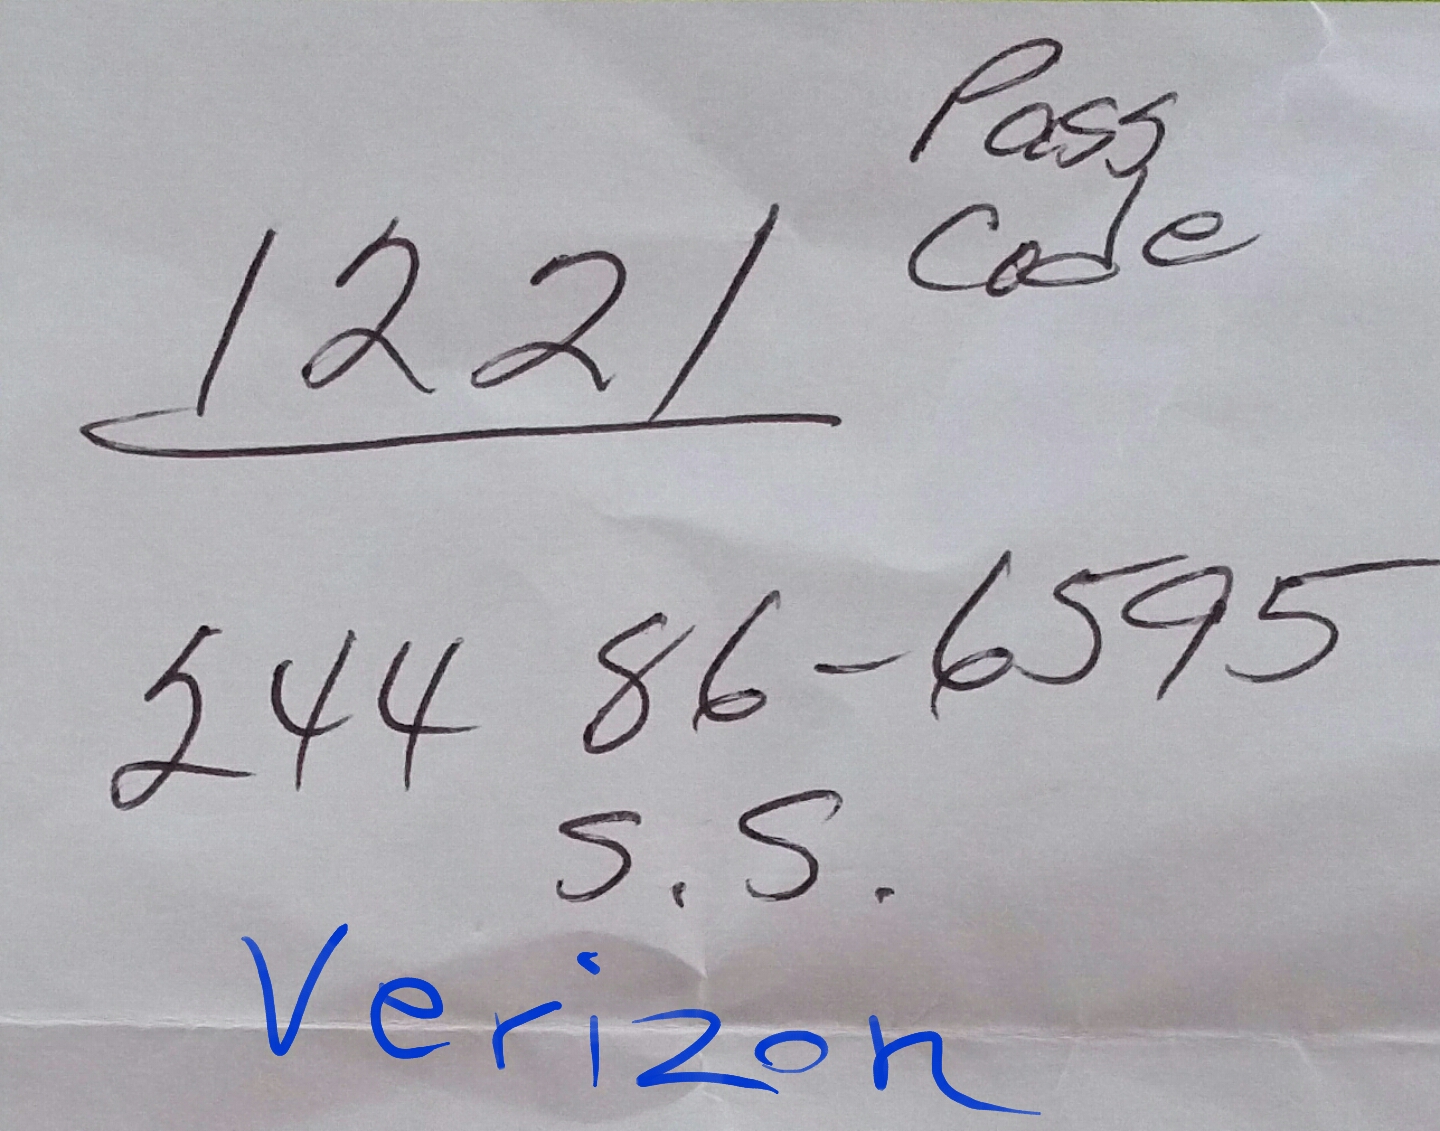 Pass
Code
1221
244 86-6595
S.S.
Verizon